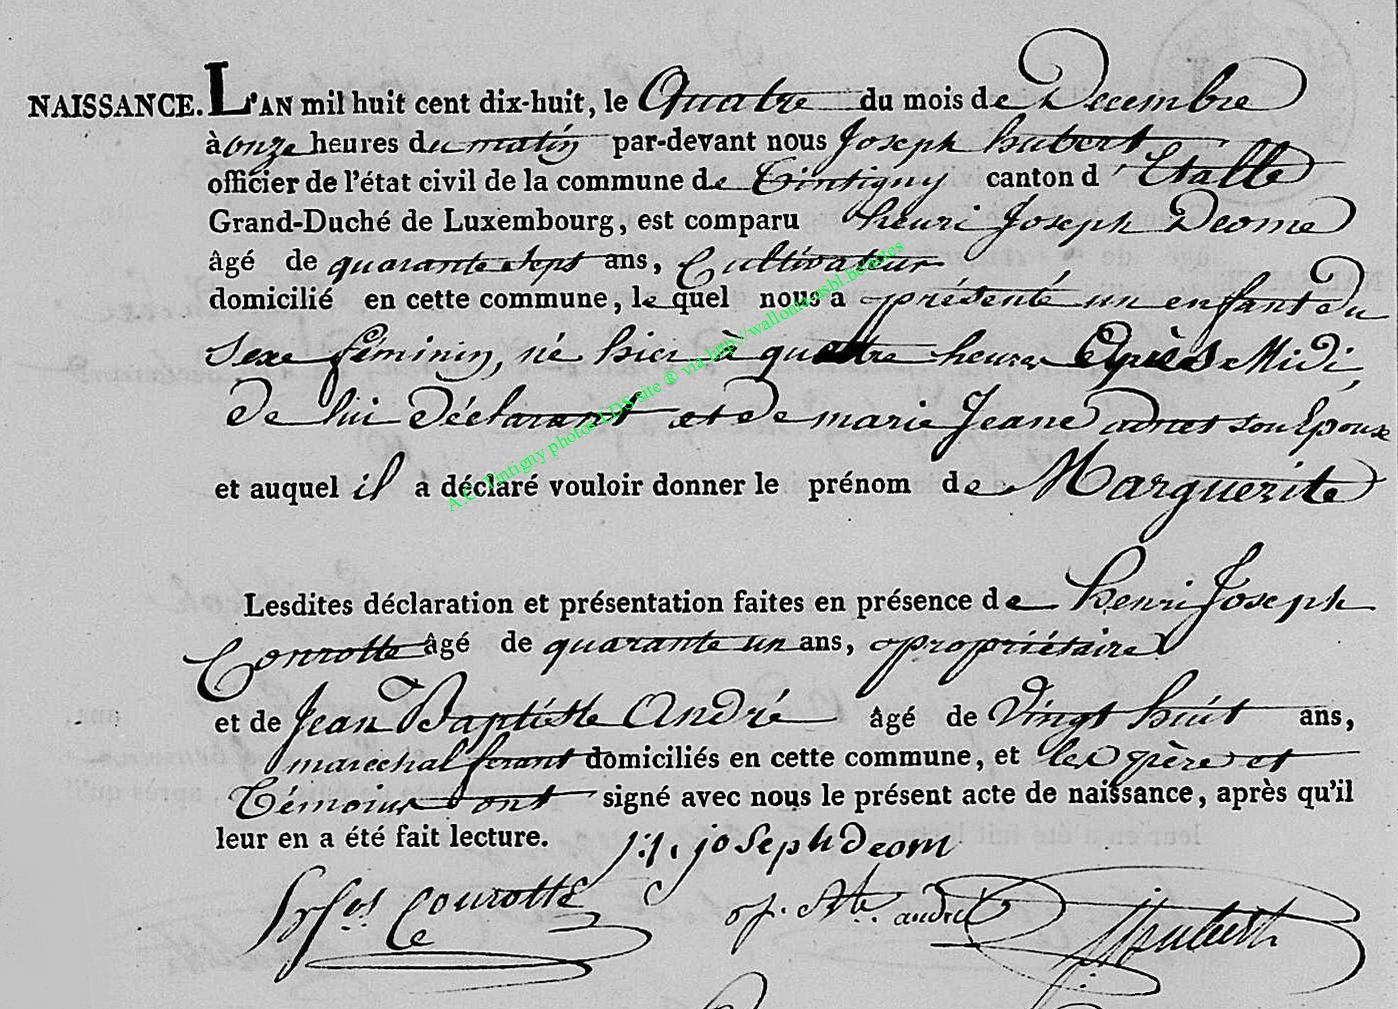 NAISSANCE. L'AN mil huit cent dix-huit, le Quatre du mois de Decembre
à onze heures du matin par-devant nous Joseph hubert
officier de l'état civil de la commune de Tintigny canton d'Etalle
Grand-Duché de Luxembourg, est comparu henri Joseph Deome
âgé de quarante sept ans, Cultivateur
domicilié en cette commune, le quel nous a présenté un enfant du
Sexe féminin, né hier à quatre heures après Midi,
de lui déclarant et de marie Jeane son Epouse
et auquel il a déclaré vouloir donner le prénom de Marguerite
Lesdites déclaration et présentation faites en présence de henri Joseph
Conrotte âgé de quarante un ans, propriétaire
et de Jean Baptiste André âgé de Vingt huit ans,
marechal ferant domiciliés en cette commune, et les père et
Témoins ont signé avec nous le présent acte de naissance, après qu'il
leur en a été fait lecture. h. joseph deom
Conrotte
j. Bte. andré JHubert
A.C. Tintigny photos LDS site ® via http://wallonia.asbl.be/actes